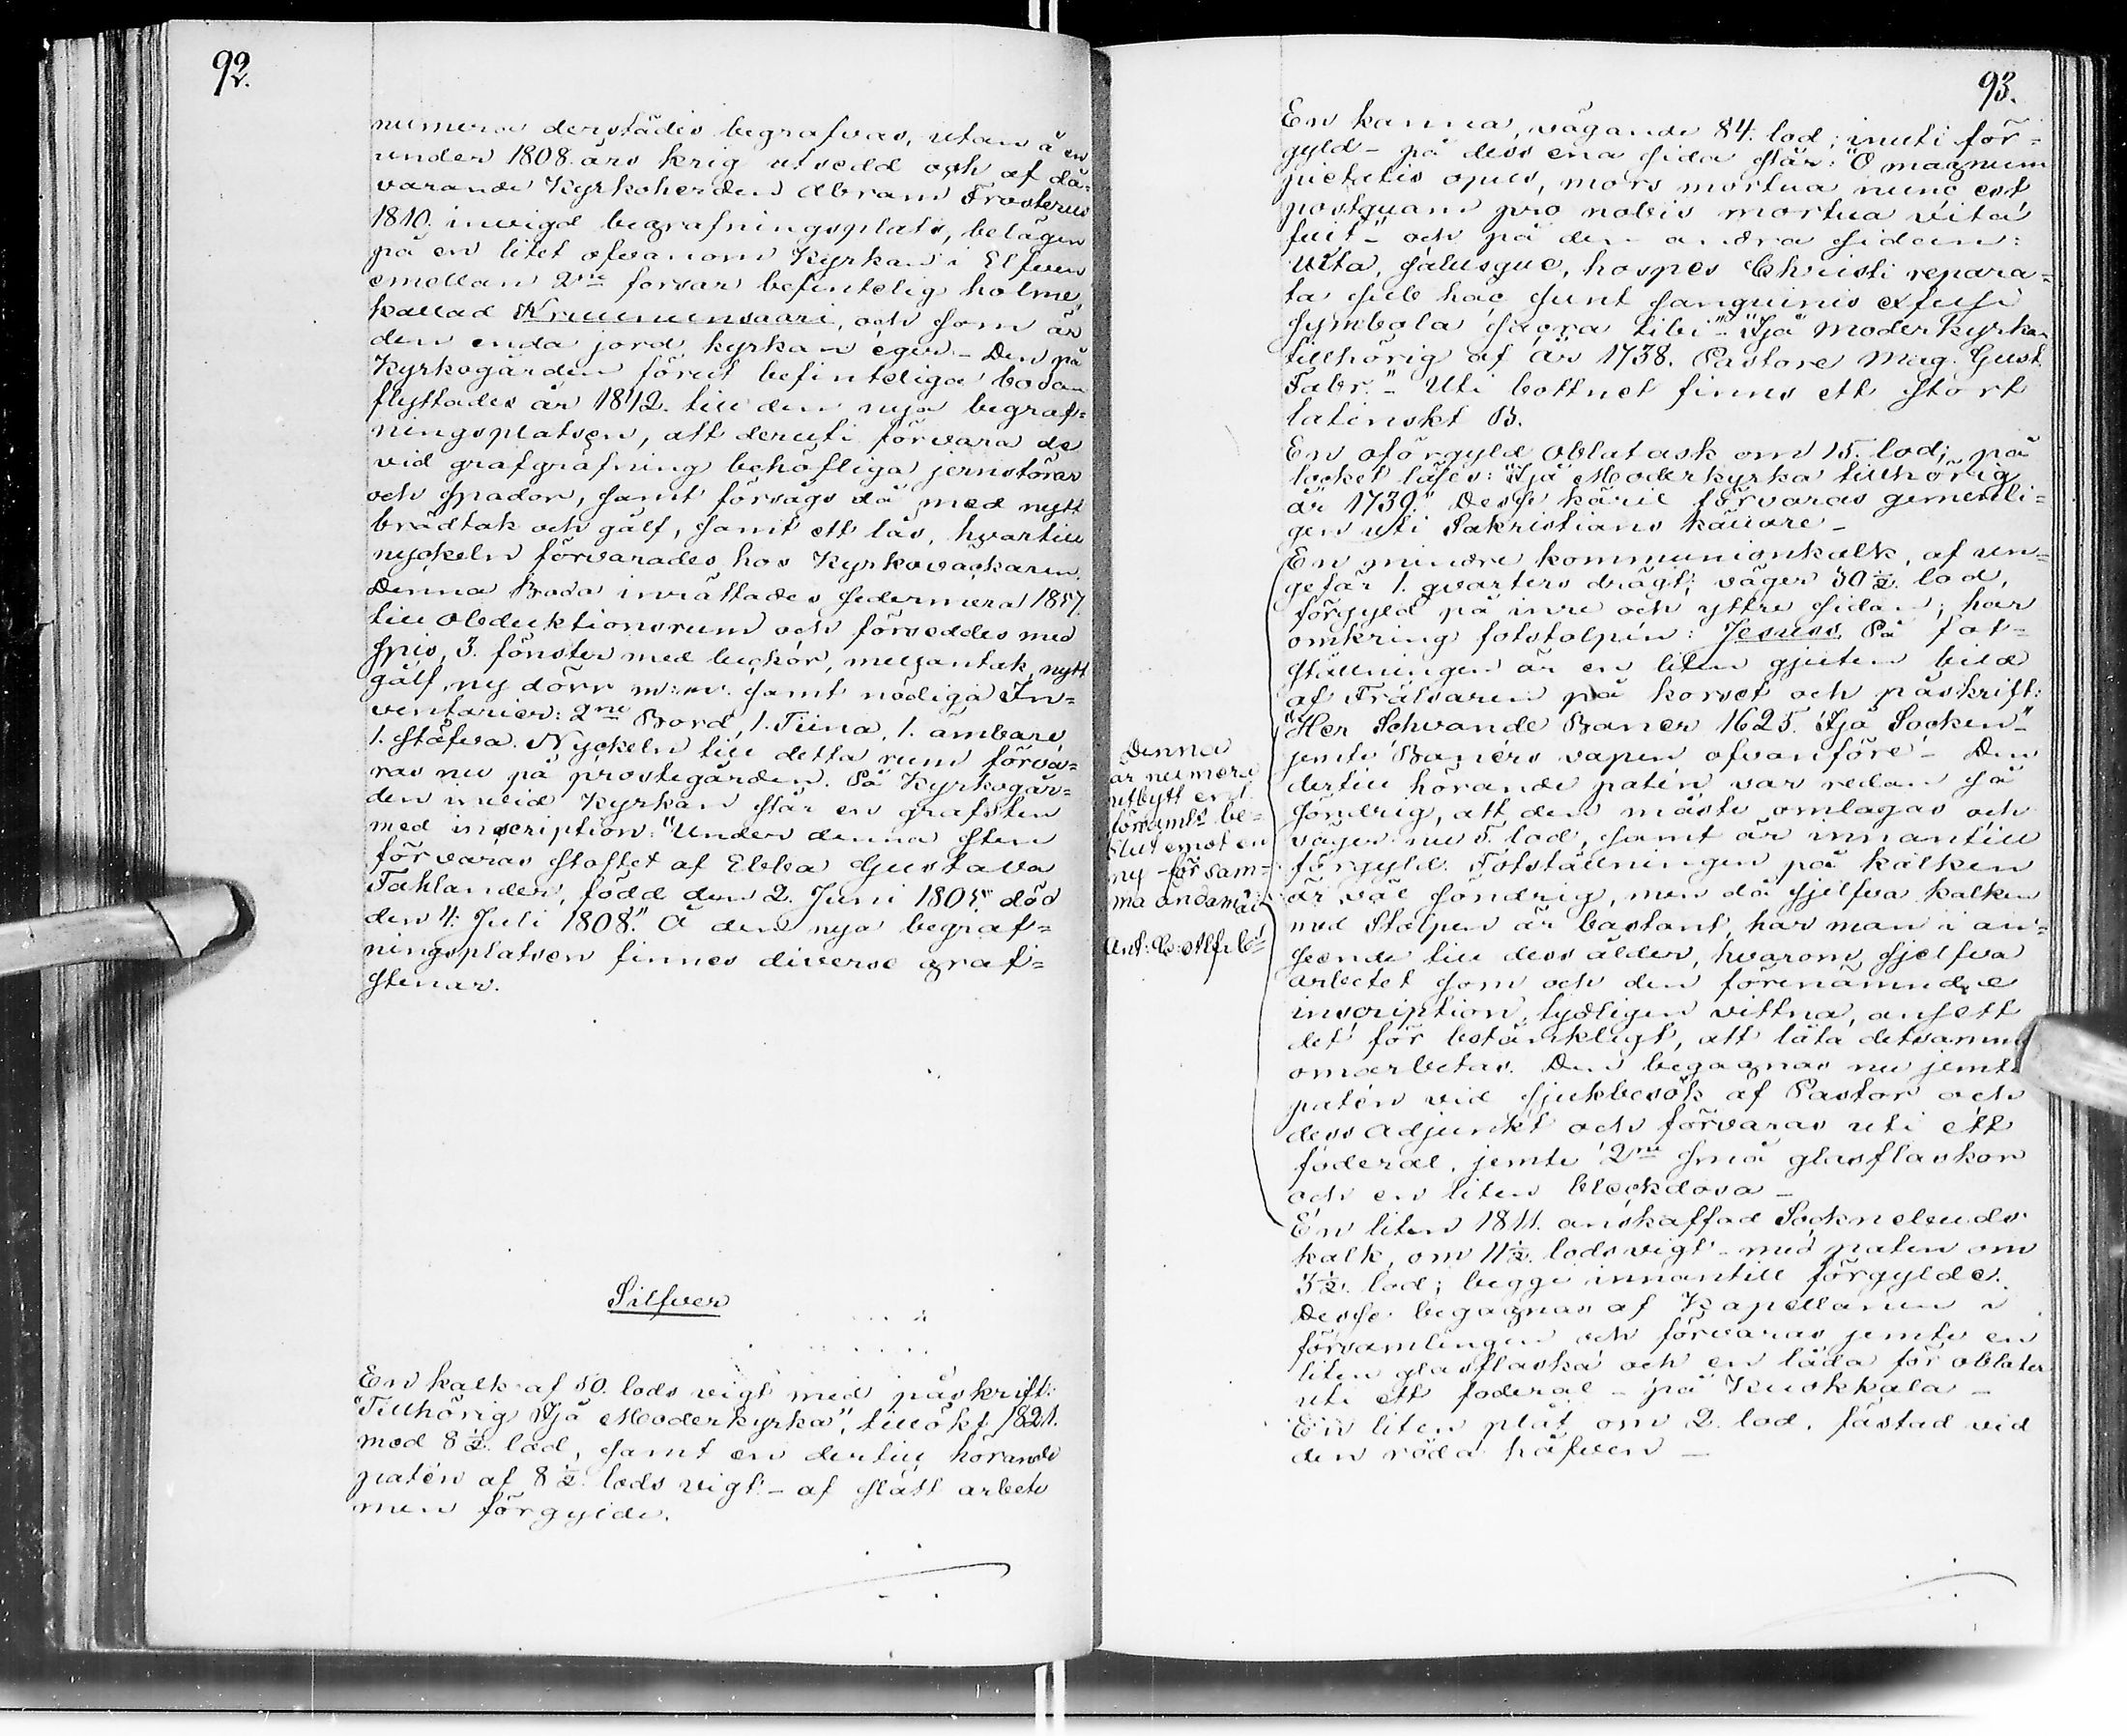 92.
numera derstädes begrafvas, utan å en
under 1808. års krig utsedd och af då-
varande Kyrkoherden Abram Frosterus
1810. invigd begrafningsplats, belägen
på en litet ofvanom Kyrkan i Elfven
emellan 2ne forsar befintelig holme,
kallad Kruunumsaari, och som är
den enda jord kyrkan eger. - Den på
Kyrkogården förut befinteliga bodan
flyttades år 1812. till den nya begraf=
ningsplatsen, att deruti förvara de
vid grafgräfning behöfliga jernstörar
och spador, samt försågs då med nytt
brädtak och gålf, samt ett lås, hvartill
nyckeln förvarades hos Kyrkovacktaren.
Denna Boda inrättades sedermera 1857.
till Obduktionsrum och förseddes med
spis, 3. fönster med luckor, mellantak, nytt
gålf, ny dörr m: m. samt nödiga In=
ventarier: 2ne Bord, 1. Tiina, 1. ämbare,
1. stäfva. Nyckeln till detta rum förva=
ras nu på prostegården. På Kyrkogår=
den invid Kyrkan står en grafsten
med inscription: "Under denna sten
förvaras stoftet af Ebba Gustava
Tahlander, född den 2. Juni 1805 död
den 4. Juli 1808." Å den nya begraf=
ningsplatsen finnes diverse graf=
stenar.
Silfver
En kalk af 50. lods vigt med påskrift:
"Tillhörig Ijå Moderkyrka", tillökt 1821.
med 8 1/2. lod, samt en dertill hörande
patén af 8 1/2. lods vigt - af slätt arbete
men förgylde.
93.
En kanna, vägande 84. lod; inuti för=
gyld - på dess ena sida står: "O magnum
pietatis opus, mors mortua nunc est
postquam pro nobis mortua vita
fuit" - och på den andra sidan:
Vita, salusque, hospes Christi repara=
ta sub hac sunt sanguinis effusi
symbola sacra tibi" - "Ijå Moderkyrka
tillhörig af År 1738. Pastore Mag. Gust.
Fabr." - Uti bottnet finnes ett stort
latinskt B.
En oförgyld Oblatask om 15. lod; på
locket läses: "Ijå Moderkyrka tillhörig
år 1739." Desse käril förvaras gemenli=
gen uti Sakristians källare -
En mindre kommunionkalk, af un=
gefär 1. qvarters drägt; väger 30 1/2. lod,
förgyld på inre och yttre sidan; har
omkring fotstolpen: Jesuss. På fot=
ställningen är en liten gjuten bild
af Frälsaren på korset och påskrift:
"Her Schvande Baner 1625. Ijå Socken"
jemte Banérs vapen ofvanföre - Den
dertill hörande patén var redan så
söndrig, att den måste omlagas och
väger nu 5. lod, samt är innantill
förgyld. Fotställningen på kalken
är väl söndrig, men då sjelfva kalken
med Stolpen är bastant, har man i an=
seende till dess ålder, hvarom sjelfva
arbetet som och den förenämnde
inscription tydligen vittna, ansett
det för betänkligt, att låta detsamma
omarbetas. Den begagnas nu jemte
patén vid sjukbesök af Pastor och
dess Adjunkt och förvaras uti ett
foderal, jemte 2ne små glasflaskor
och en liten bleckdosa -
En liten 1811. anskaffad Socknebuds
kalk, om 11 1/2. lods vigt - med paten om
3 1/2. lod; begge innantill förgylde.
Desse begagnas af Kapellanen i
församlingen och förvaras jemte en
liten glasflaska och en låda för oblater
uti ett foderal - på Kuokkala -
En liten plåt om 2. lod. fästad vid
den röda håfven -
Denna
är numera
utbytt enl.
församls be=
slut emot en
ny för sam=
ma ändamål